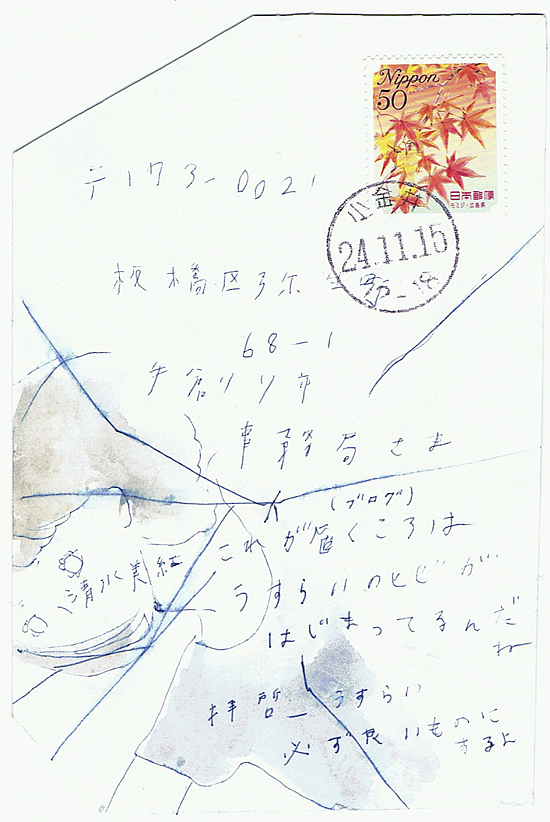 Nippon
50
日本郵便
モミジ・広島県
小金井
24.11.15
〒173-0021
板橋区弥生町
68-1
事務局さま
(ブログ)
これが届くころは
うすらいの
はじまってるんだ
ね
清水美紅
拝啓_うすらい
必ず良いものに
するよ